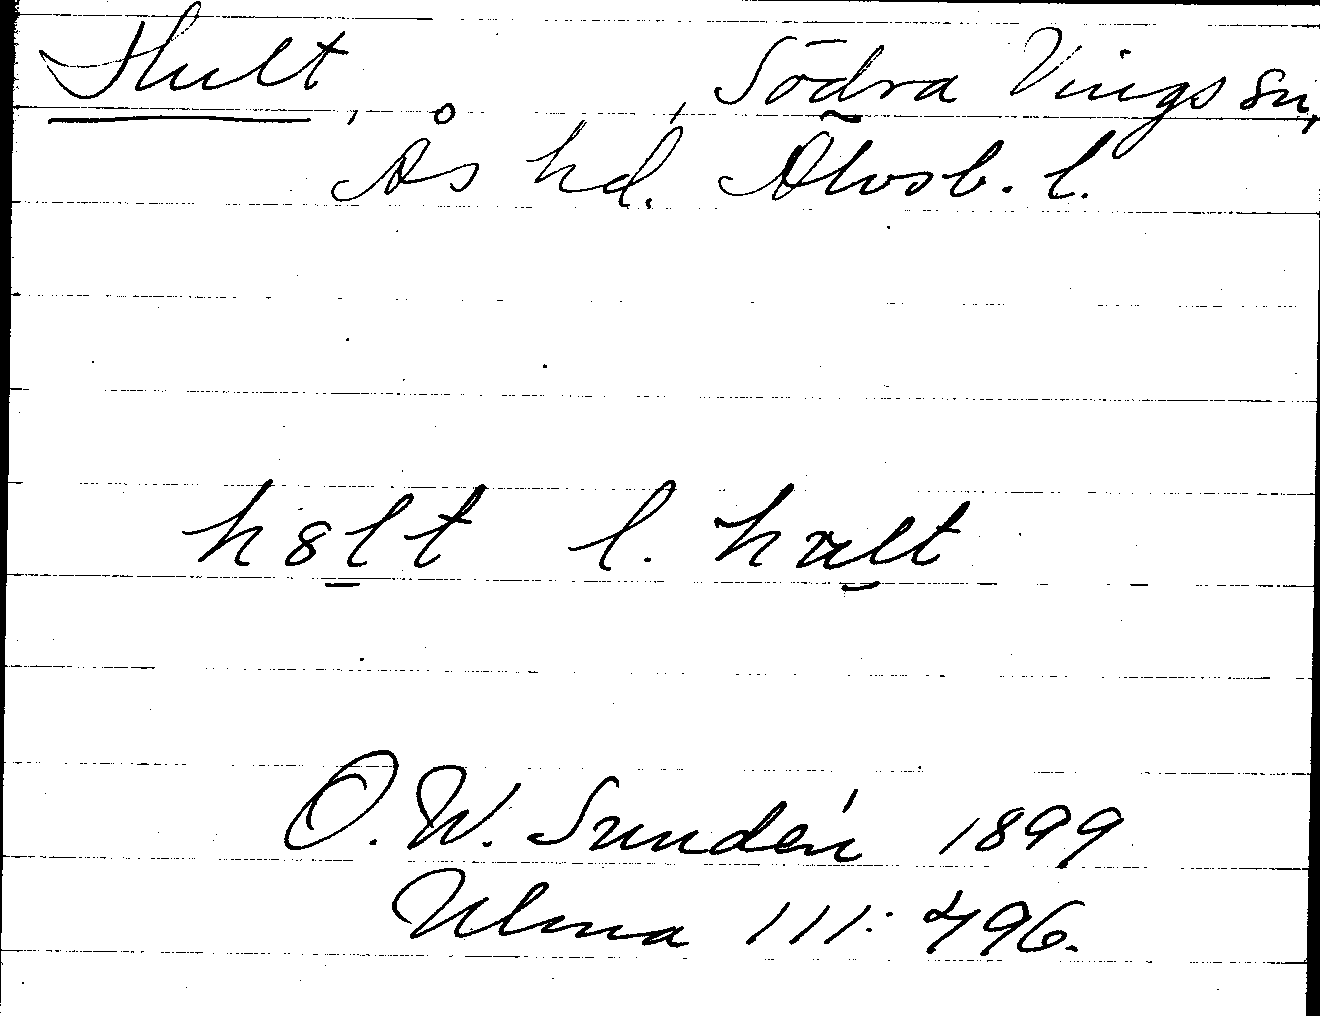 Hult, Södra Vings sn,
Ås hd. Älvsb. l.
h8lt l. hælt
O. W. Sundén 1899
Ulma 111:496.